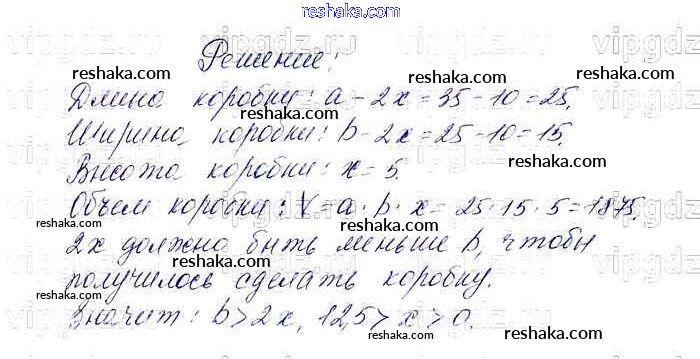 reshaka.com
Решение:
reshaka.com reshaka.com
Длина коробки: a - 2x = 35 - 10 = 25.
reshaka.com
Ширина коробки: b - 2x = 25 - 10 = 15.
reshaka.com
Высота коробки: x = 5.
reshaka.com
Объем коробки: V = a · b · x = 25 · 15 · 5 = 1875.
reshaka.com reshaka.com
2x должно быть меньше b, чтобы
reshaka.com
получилось сделать коробку.
reshaka.com reshaka.com
Значит: b > 2x, 12,5 > x > 0.
reshaka.com